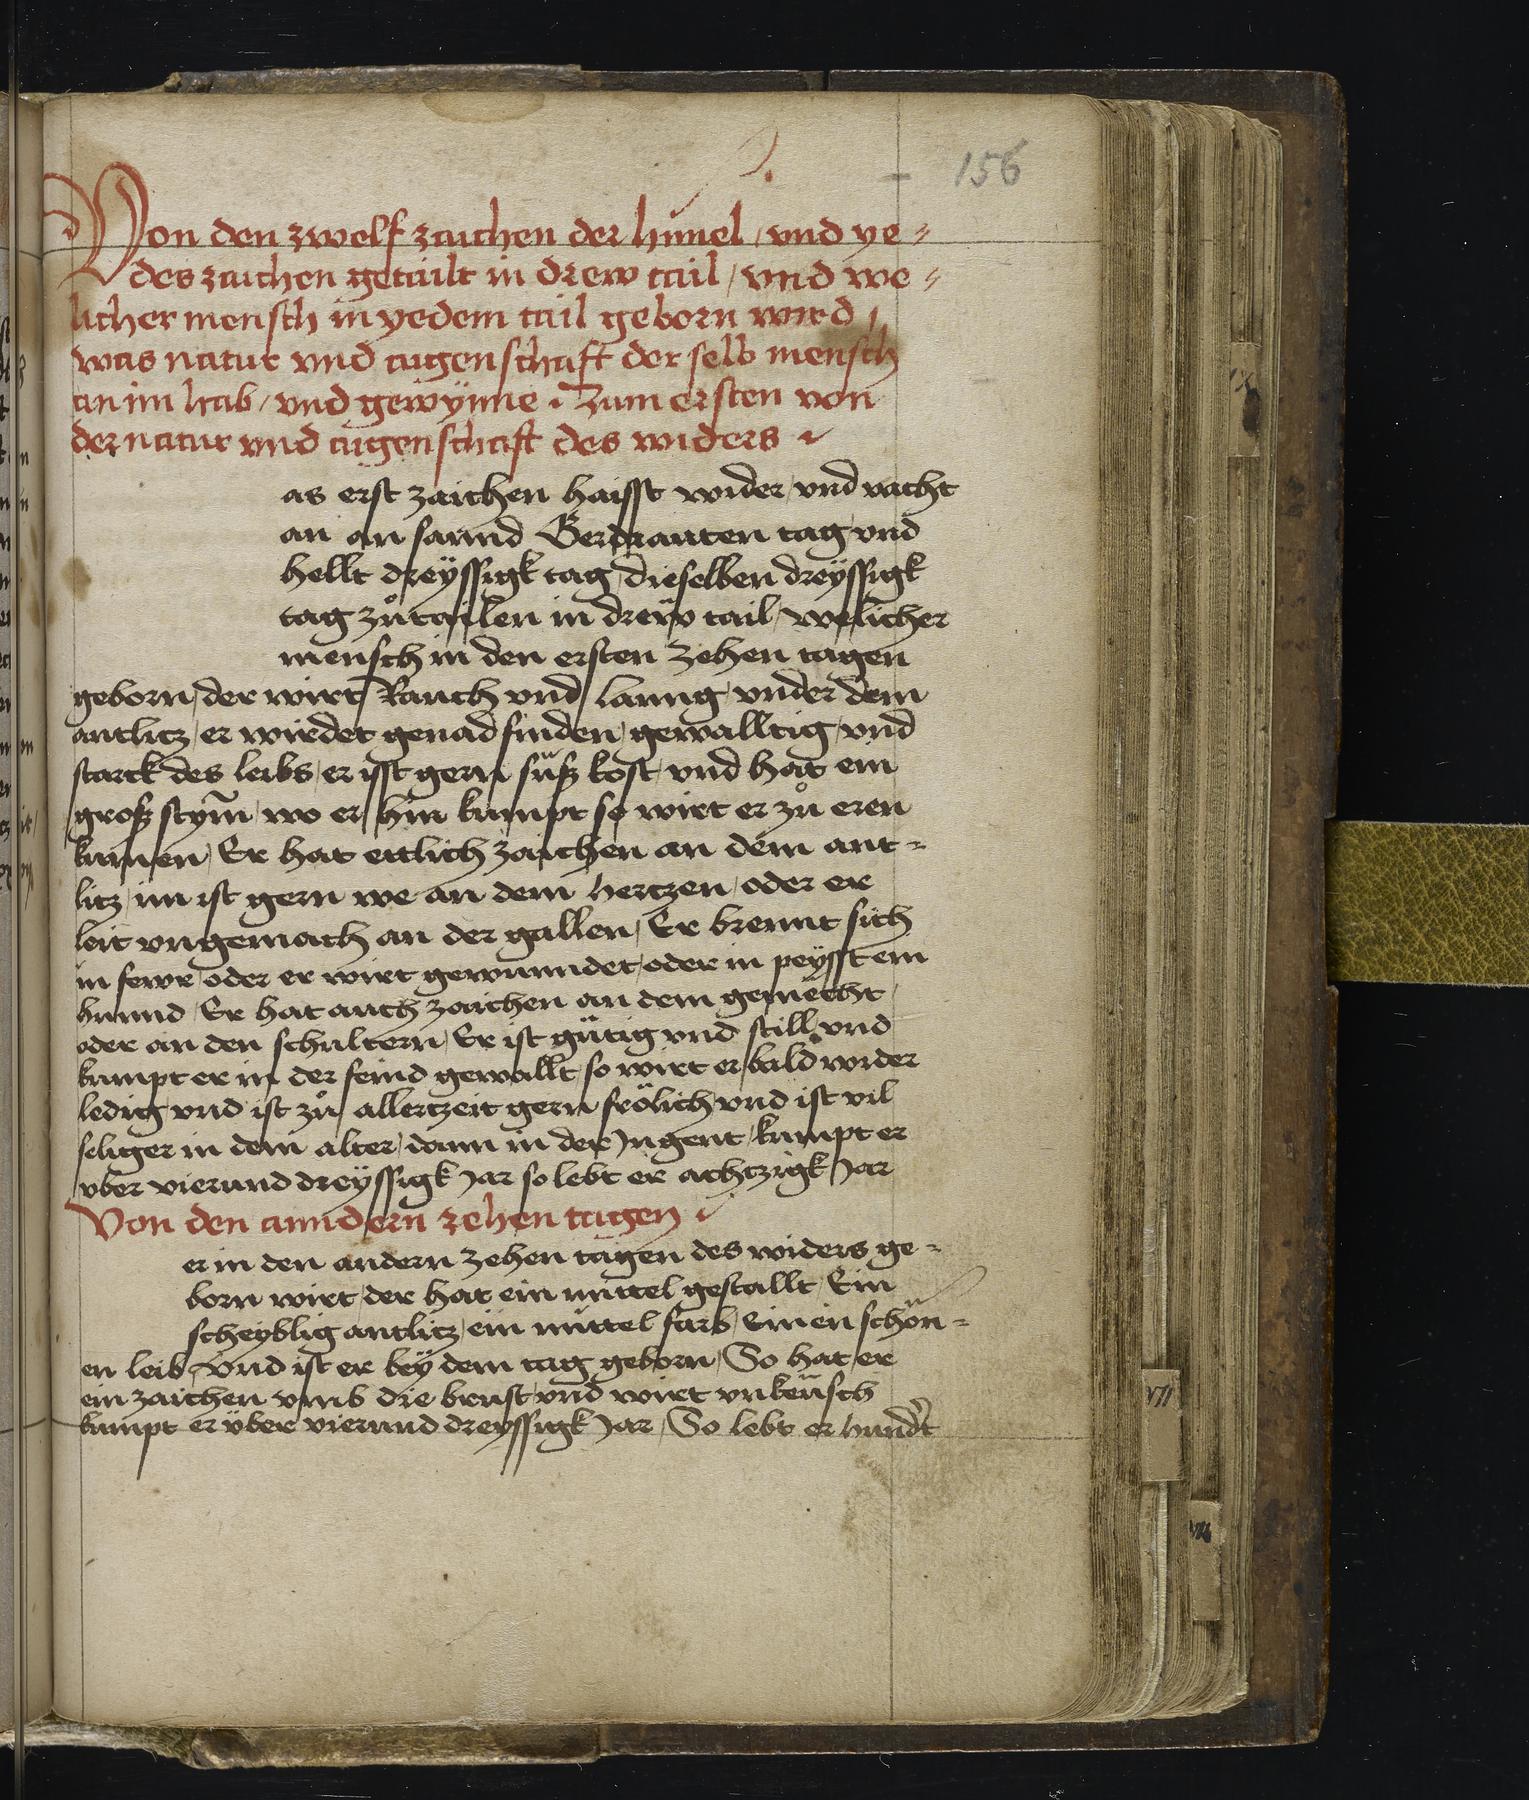 156
Von den zwelf zaichen der himel / vnd ye⸗
des zaichen getailt in drew tail / vnd we⸗
licher mensch in yedem tail geborn wird /
was natur vnd aigenschaft der selb mensch
an im hab / vnd gewÿnne · Zum ersten von
der natur vnd aigenschaft des widers ·
as erst zaichen haisst wider / vnd vacht
an an sannd Gerdrauten tag vnd
hellt dreÿssigk tag / dieselben dreÿssigk
tag zůtailen in drew tail / welicher
mensch in den ersten zehen tagen
geborn / der wirt Rauch vnd lanng vnder dem
antlitz / er wirdet genad finden / gewalltig / vnd
starck des leibs / er isst gern süsz kost / vnd hat ein
grosz stym̄ / wo er hin kumpt so wirt er zů eren
kumen / Er hat ettlich zaichen an dem ant⸗
litz / im ist gern we an dem hertzen / oder er
leit vngemach an der gallen / Er brennt sich
in fewr / oder er wirt gewunndet / oder in peÿsst ein
hunnd / Er hat auch zaichen an dem gemecht /
oder an den schultern / Er ist gütig vnd still / vnd
kumpt er in der feind gewallt so wirt er bald wider
ledig / vnd ist zů allertzeit gern frölich / vnd ist vil
seliger in dem alter / dann in der Jugent / kumpt er
vber vierund dreÿssigk Jar so lebt er achtzigk Jar
Von den anndern zehen tagen ·
er in den andern zehen tagen des widers ge⸗
born wirt / der hat ein mittel gestallt / Ein
scheyblig antlitz / ein mittel farb / Einen schön⸗
en leib / Vnd ist er beÿ dem tag geborn / So hat er
ein zaichen vmb die brust / vnd wirt vnkeüsch
kumpt er über vierund dreÿssigk Jar / So lebt er hund̉t
VII